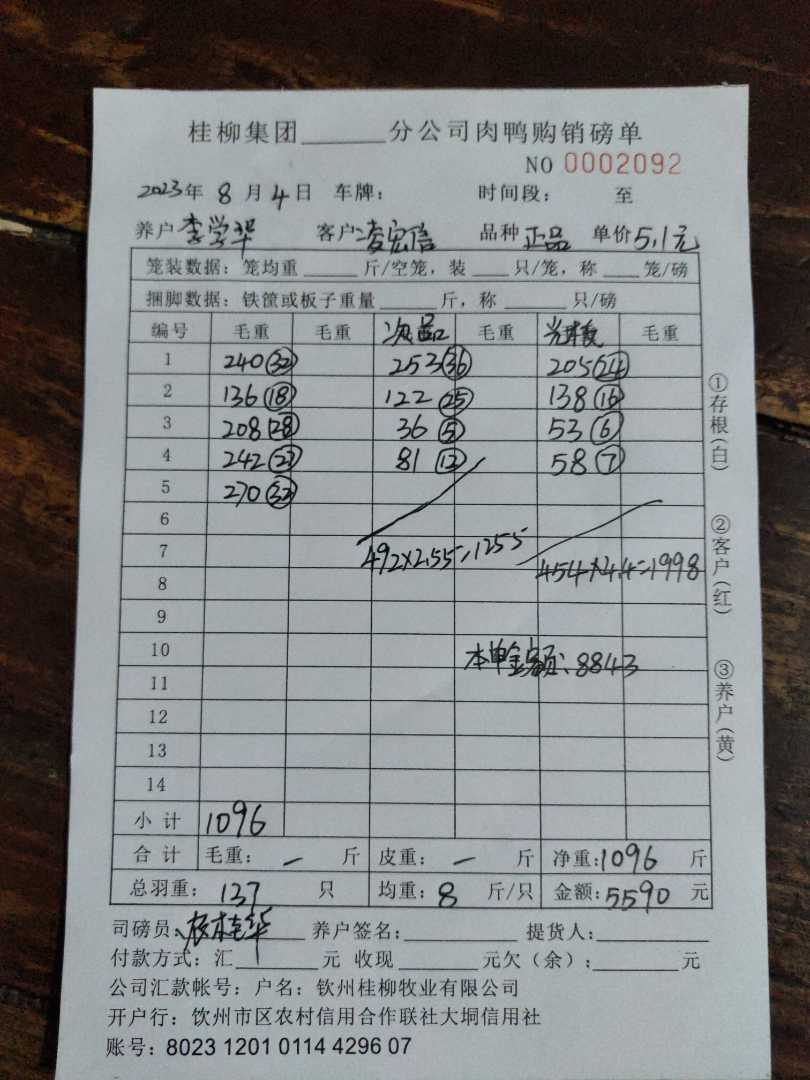 桂柳集团______分公司肉鸭购销磅单
NO 0002092
2023年 8月4日 车牌： 时间段： 至
养户李学华 客户凌宏信 品种正品 单价5.1元
笼装数据：笼均重____斤/空笼，装___只/笼，称___笼/磅
捆脚数据：铁筐或板子重量____斤，称____只/磅
编号 毛重 毛重 次品 毛重 毛重
1 240(32) 253(36) 205(24)
2 136(18) 122(25) 138(16)
3 208(28) 36(5) 53(6)
4 242(27) 81(12) 58(7)
5 270(32)
6
7 492×2.55=1255
8 454×4.4=1998
9
10 本单金额：8843
11
12
13
14
小计 1096
合计 毛重：— 斤 皮重：— 斤 净重：1096 斤
总羽重：137 只 均重：8 斤/只 金额：5590 元
司磅员： 养户签名： 提货人：
付款方式：汇______元 收现______元欠（余）：______元
公司汇款帐号：户名：钦州桂柳牧业有限公司
开户行：饮州市区农村信用合作联社大垌信用社
账号：8023 1201 0114 4296 07
①存根(白)
②客户(红)
③养户(黄)